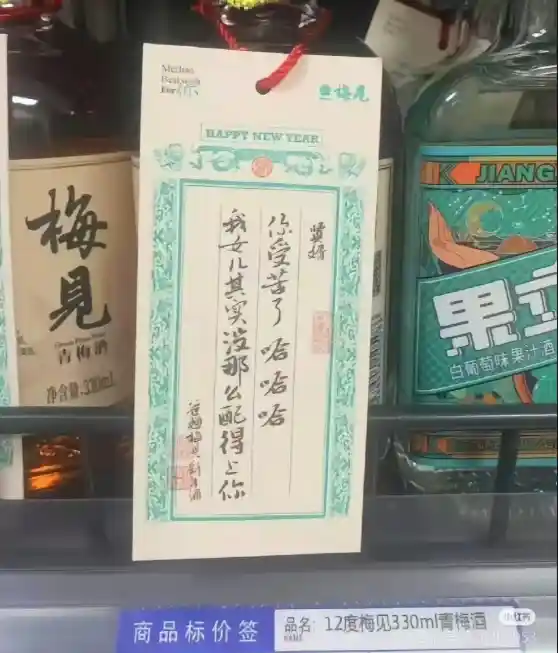 梅見
青梅酒
净含量:330mL
梅見
HAPPY NEW YEAR
賢婿
你受苦了 哈哈哈
我女儿其实没那么配得上你
JIANG
果立
白葡萄味果汁酒
商品标价签
品名: 12度梅见330ml青梅酒
小红书